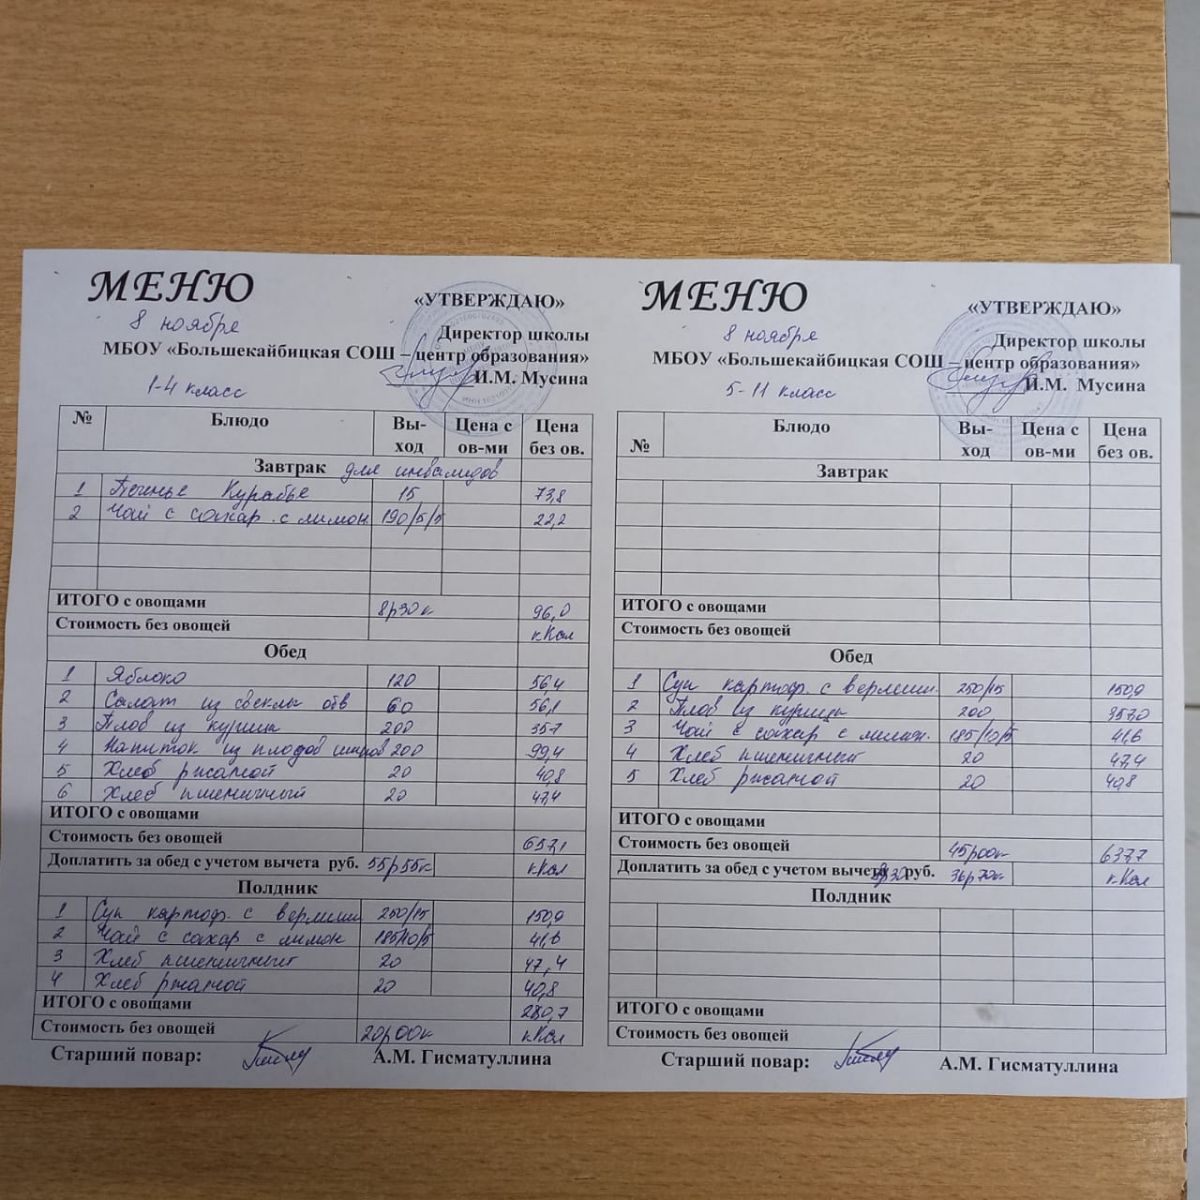 МЕНЮ
«УТВЕРЖДАЮ»
8 ноября
Директор школы
МБОУ «Большекайбицкая СОШ – центр образования»
И.М. Мусина
1-4 класс
№ Блюдо Вы-ход Цена с ов-ми Цена без ов.
Завтрак для инвалидов
1 Печенье Курабье 15 73,8
2 Чай с сахар. с лимон 190/5/5 22,2
ИТОГО с овощами 8р30к 96,0
Стоимость без овощей кКал
Обед
1 Яблоко 120 56,4
2 Салат из свеклы отв 60 56,1
3 Плов из курицы 200 357
4 Напиток из плодов шипов 200 99,4
5 Хлеб ржаной 20 40,8
6 Хлеб пшеничный 20 47,4
ИТОГО с овощами
Стоимость без овощей 657,1
Доплатить за обед с учетом вычета руб. 55р55к кКал
Полдник
1 Суп картоф. с вермиши 250/15 150,9
2 Чай с сахар с лимон 185/10/5 41,6
3 Хлеб пшеничный 20 47,4
4 Хлеб ржаной 20 40,8
ИТОГО с овощами 280,7
Стоимость без овощей 20р00к кКал
Старший повар: А.М. Гисматуллина
МЕНЮ
«УТВЕРЖДАЮ»
8 ноября
Директор школы
МБОУ «Большекайбицкая СОШ – центр образования»
И.М. Мусина
5-11 класс
№ Блюдо Вы-ход Цена с ов-ми Цена без ов.
Завтрак
ИТОГО с овощами
Стоимость без овощей
Обед
1 Суп картоф. с вермиши. 250/15 150,9
2 Плов из курицы 200 357,0
3 Чай с сахар с лимон. 185/10/5 41,6
4 Хлеб пшеничный 20 47,4
5 Хлеб ржаной 20 40,8
ИТОГО с овощами
Стоимость без овощей 45р00к 637,7
Доплатить за обед с учетом вычета руб. 36р70к кКал
Полдник
ИТОГО с овощами
Стоимость без овощей
Старший повар: А.М. Гисматуллина